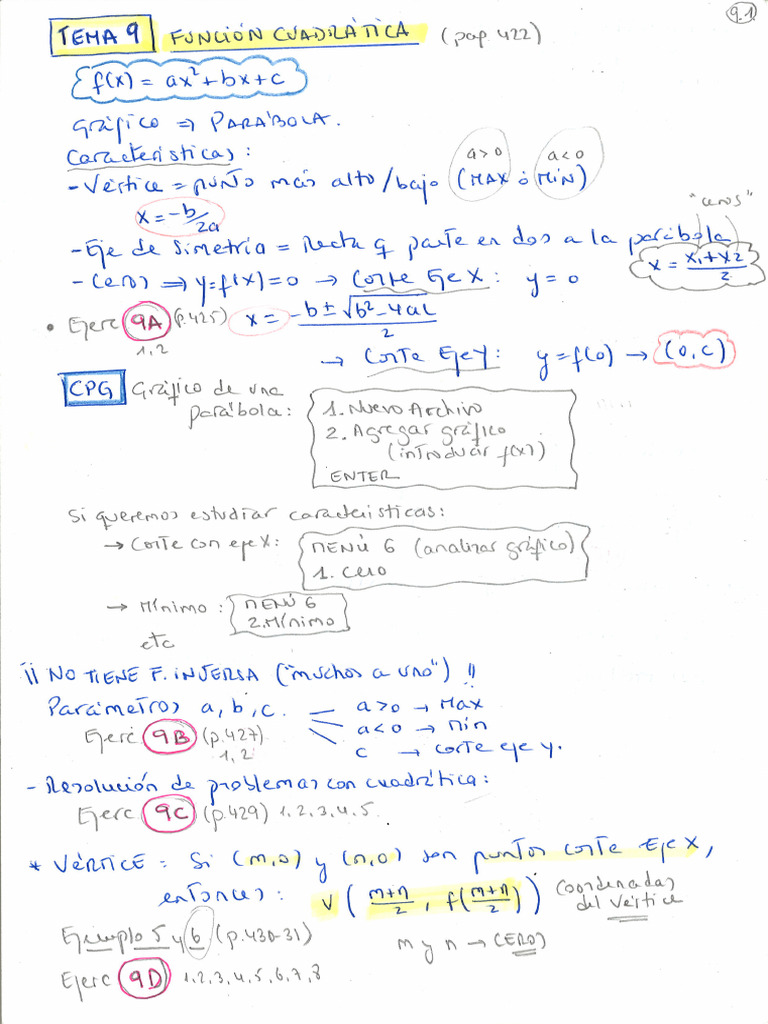 9.1
TEMA 9 FUNCIÓN CUADRÁTICA (pap 422)
f(x) = ax²+bx+c
Gráfico ⇒ PARÁBOLA.
Características:
a>0 a<0
- Vértice = punto más alto/bajo (MAX ó MIN)
x = -b/2a
"ceros"
- Eje de Simetría = Recta q parte en dos a la parábola
x = (x1+x2)/2
- Ceros ⇒ y=f(x)=0 → Corte Eje X: y=0
• Ejerc 9A (p.425) x = (-b ± √(b²-4ac))/2
1,2
→ Corte Eje Y: y=f(0) → (0,c)
CPG Gráfico de una
parábola:
1. Nuevo Archivo
2. Agregar gráfico
(introducir f(x))
ENTER
Si queremos estudiar características:
→ Corte con eje X: MENÚ 6 (analizar gráfico)
1. Cero
→ Mínimo: MENÚ 6
2. Mínimo
etc
¡¡ NO TIENE F. INVERSA ("muchos a uno") !!
Parámetros a, b, c. a>0 → Max
a<0 → Min
c → corte eje y.
Ejerc 9B (p.427)
1,2
- Resolución de problemas con cuadrática:
Ejerc 9C (p.429) 1,2,3,4,5
* VÉRTICE = Si (m,0) y (n,0) son puntos corte Eje X,
entonces: V((m+n)/2, f((m+n)/2)) Coordenadas
del Vértice
Ejemplo 5 y 6 (p.430-31)
m y n → CEROS
Ejerc 9D 1,2,3,4,5,6,7,8